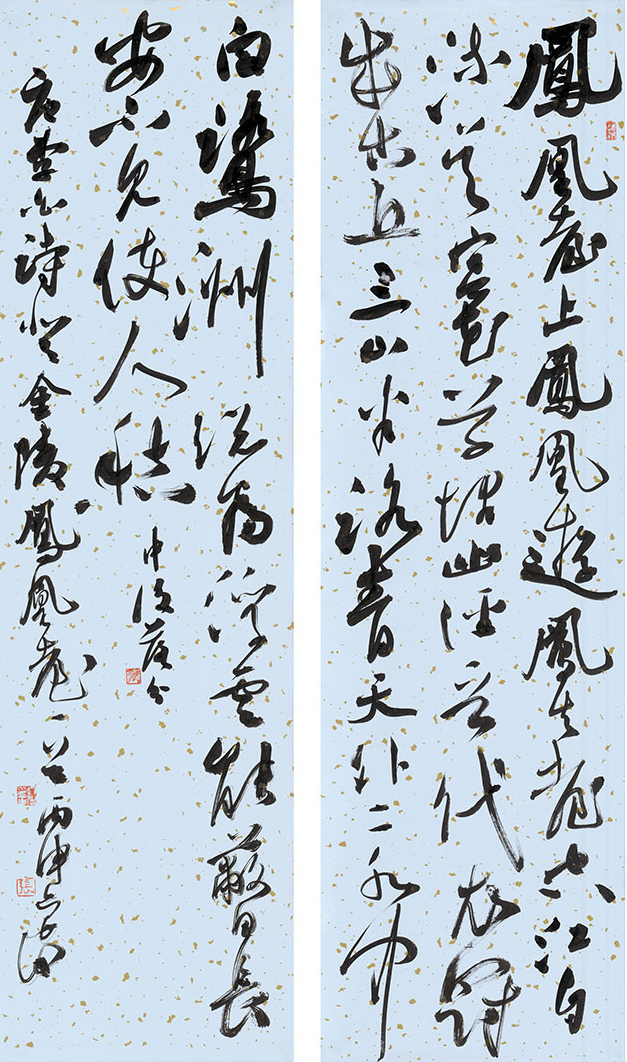 鳳凰臺上鳳凰遊鳳去臺空江自
流吳宮花草埋幽徑晉代衣冠
成古丘三山半落青天外二水中
白鷺洲總為浮雲能蔽日長
安不見使人愁
中後落分
唐李白詩登金陵鳳凰臺一首丙申